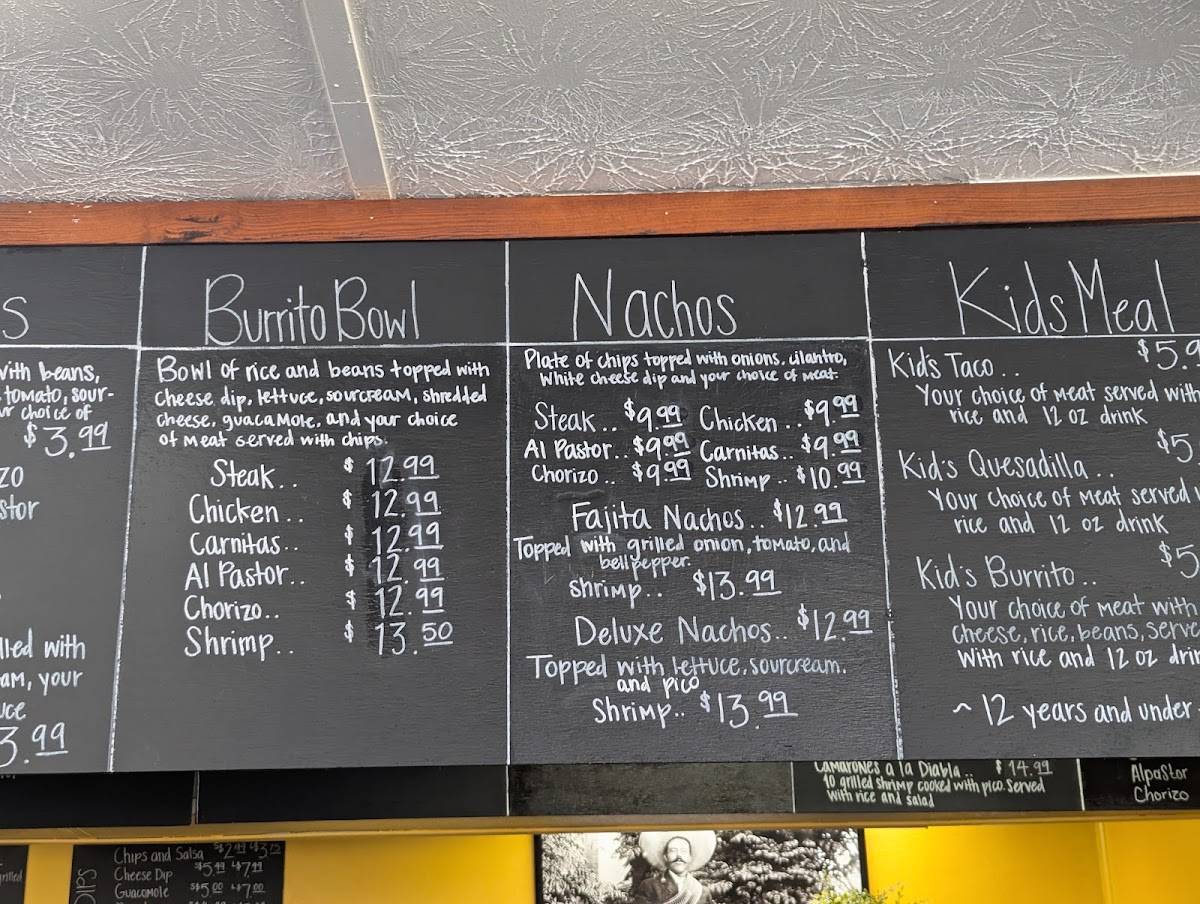 s
with beans,
tomato, sour-
ur choice of
$3.99
zo
stor
lled with
am, your
uce
3.99
Burrito Bowl
Bowl of rice and beans topped with
cheese dip, lettuce, sourcream, shredded
cheese, guacamole, and your choice
of meat served with chips.
Steak.. $12.99
Chicken.. $12.99
Carnitas.. $12.99
Al Pastor.. $12.99
Chorizo.. $12.99
Shrimp.. $13.50
Nachos
Plate of chips topped with onions, cilantro,
White cheese dip and your choice of meat.
Steak.. $9.99 Chicken.. $9.99
Al Pastor.. $9.99 Carnitas.. $9.99
Chorizo.. $9.99 Shrimp.. $10.99
Fajita Nachos.. $12.99
Topped with grilled onion, tomato, and
bellpepper.
Shrimp.. $13.99
Deluxe Nachos.. $12.99
Topped with lettuce, sourcream.
and pico
Shrimp.. $13.99
Kids Meal
Kid's Taco.. $5.9
Your choice of meat served with
rice and 12 oz drink
Kid's Quesadilla.. $5.
Your choice of meat served
rice and 12 oz drink
Kid's Burrito.. $5
Your choice of meat with
cheese, rice, beans, serve
with rice and 12 oz drin
~ 12 years and under
Camarones a la Diabla.. $14.99
10 grilled shrimp cooked with pico. Served
with rice and salad
Alpastor
Chorizo
grilled
DIPS
Chips and Salsa $2.99 $3.75
Cheese Dip $5.99 $7.99
Guacomole $5.00 $7.00